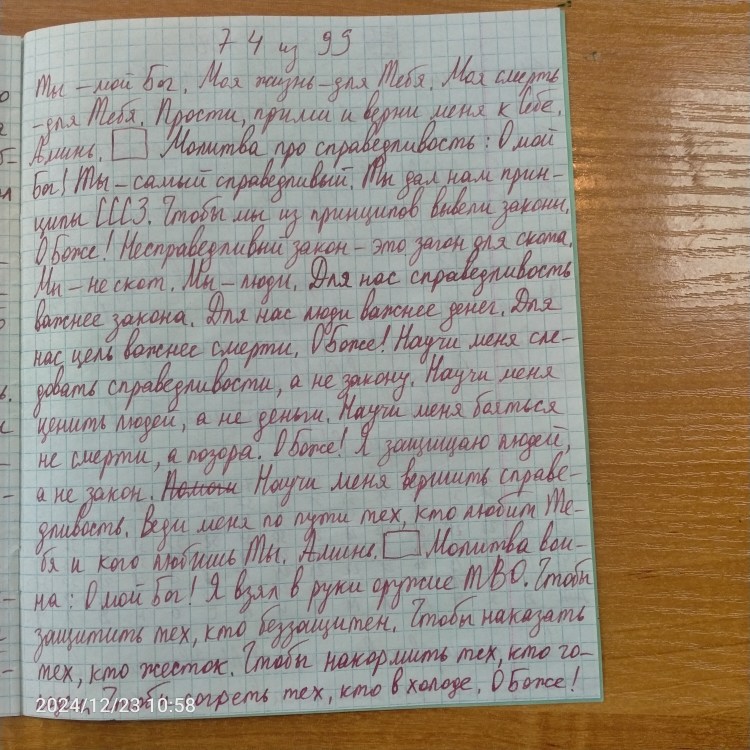 74 из 99
Ты – мой Бог. Моя жизнь – для Тебя. Моя смерть
– для Тебя. Прости, прими и верни меня к Себе.
Аминь. Молитва про справедливость: О мой
Бог! Ты – самый справедливый. Ты дал нам прин-
ципы СССЗ. Чтобы мы из принципов вывели законы.
О Боже! Несправедливый закон – это загон для скота.
Мы – не скот. Мы – люди. Для нас справедливость
важнее закона. Для нас люди важнее денег. Для
нас цель важнее смерти. О Боже! Научи меня сле-
довать справедливости, а не закону. Научи меня
ценить людей, а не деньги. Научи меня бояться
не смерти, а позора. О Боже! Я защищаю людей,
а не закон. Помоги Научи меня вершить справе-
дливость. Веди меня по пути тех, кто любит Те-
бя и кого любишь Ты. Аминь. Молитва вои-
на: О мой Бог! Я взял в руки оружие ТВО. Чтобы
защитить тех, кто беззащитен. Чтобы наказать
тех, кто жесток. Чтобы накормить тех, кто го-
согреть тех, кто в холоде. О Боже!
2024/12/23 10:58